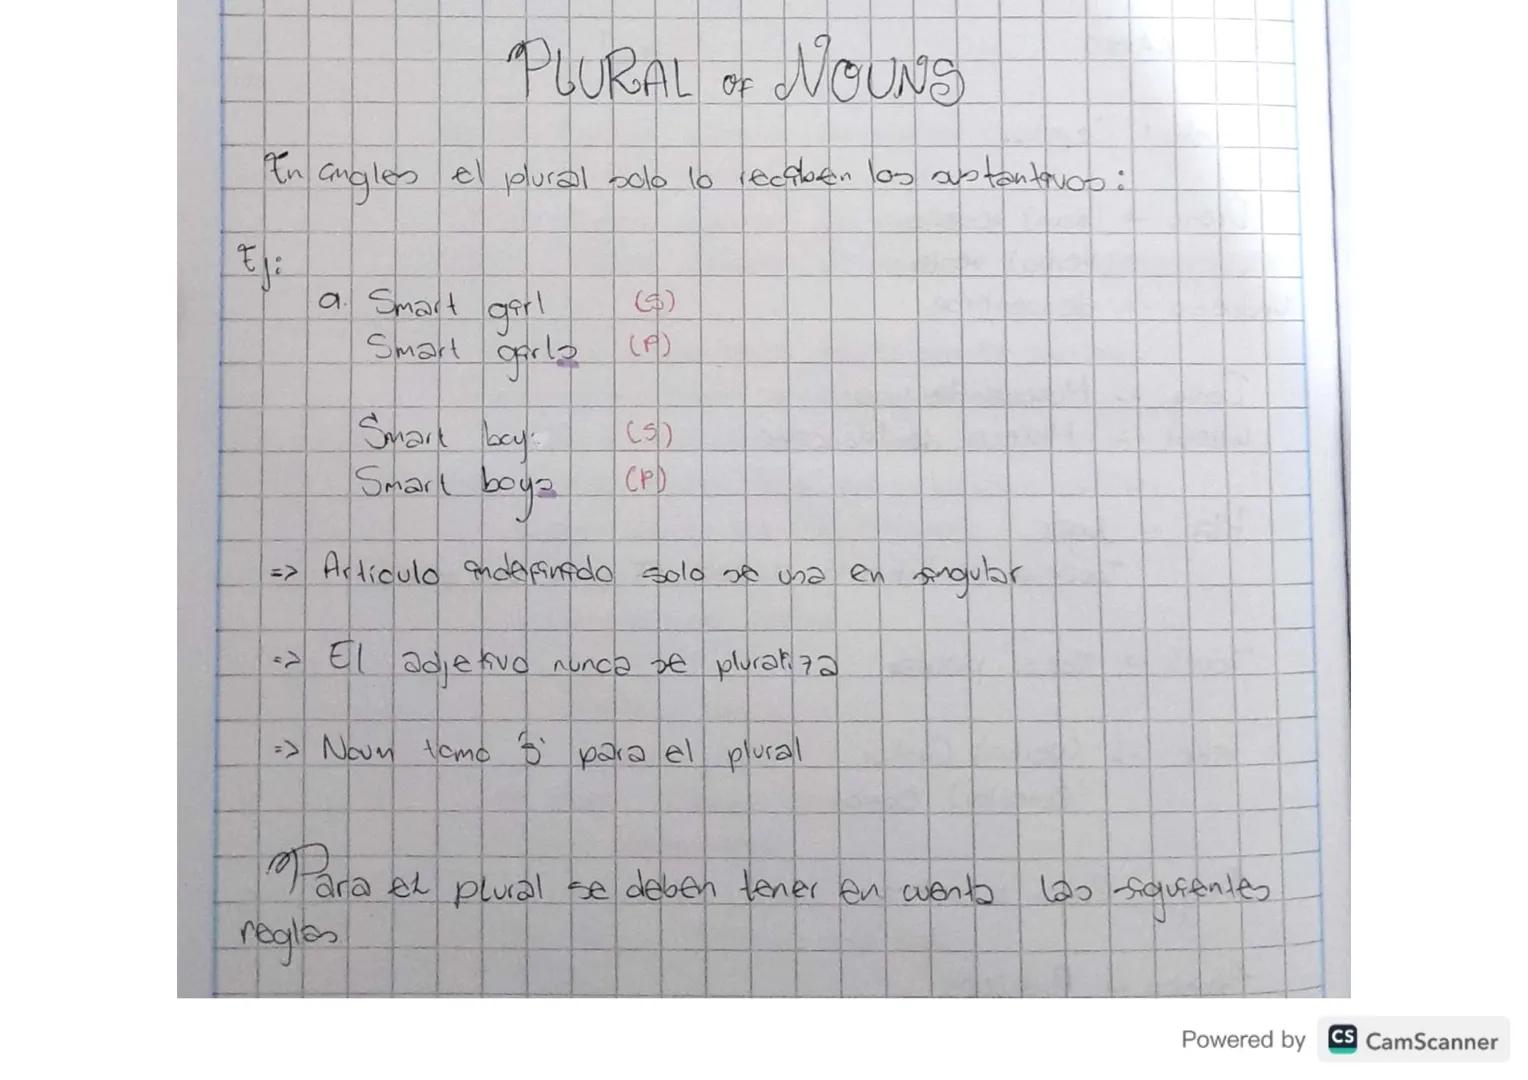 PLURAL OF NOUNS
En ingles el plural solo lo reciben los sustantivos:
Ej:
a. Smart girl (S)
Smart girls (P)
Smart boy. (S)
Smart boys (P)
=> Articulo indefinido solo se usa en singular
=> El adjetivo nunca se pluraliza
=> Noun toma 's' para el plural
Para el plural se deben tener en cuenta las siguientes
reglas
Powered by CS CamScanner